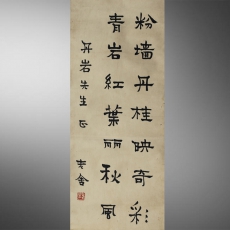 粉墙丹桂映奇彩
青岩紅葉丽秋风
丹岩先生正
老舍